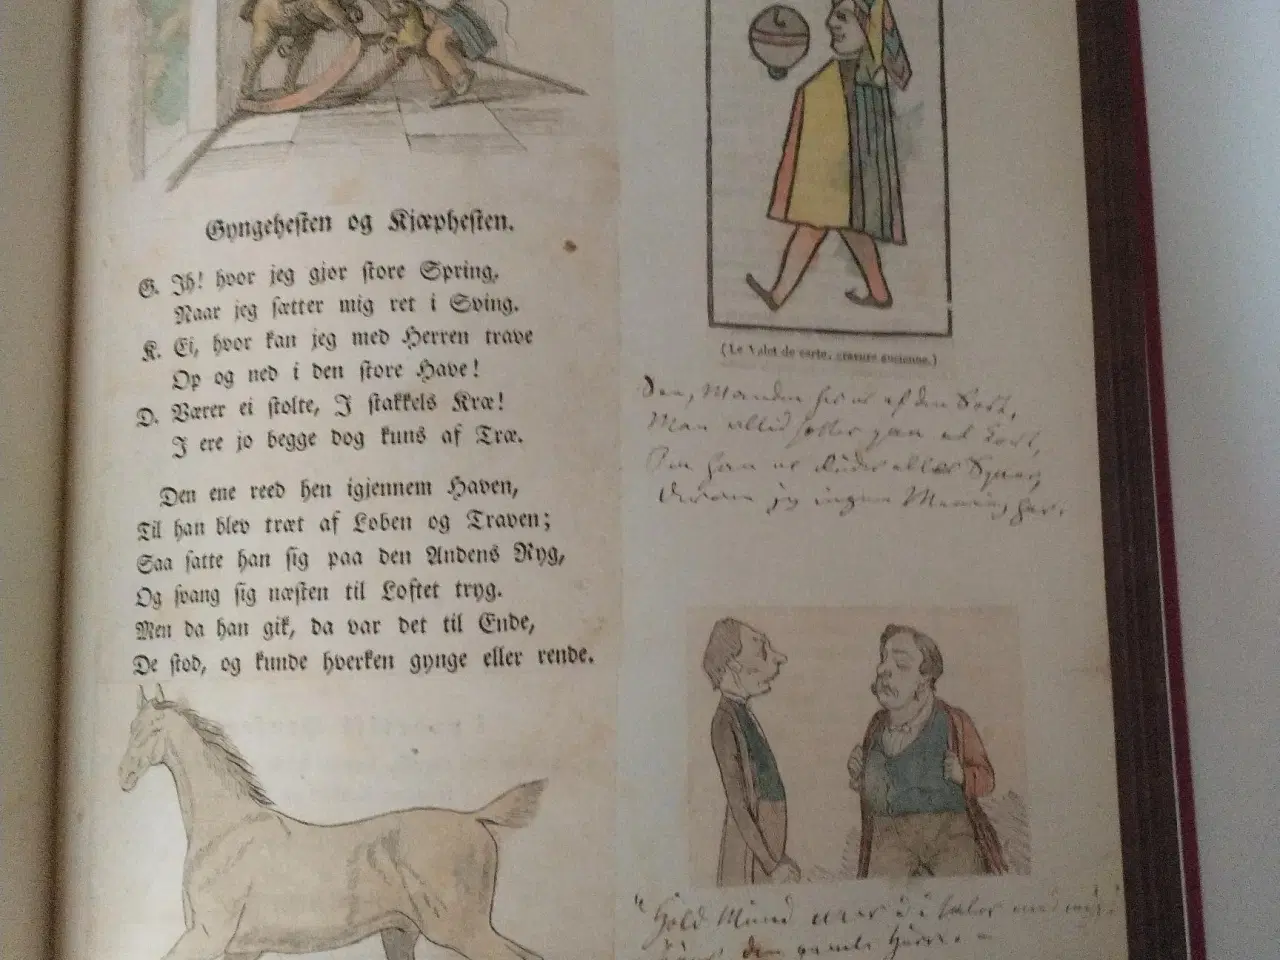 Gyngehesten og Kjæphesten.
G. Ih! hvor jeg gjør store Spring,
Naar jeg sætter mig ret i Sving.
K. Ei, hvor kan jeg med Herren trave
Op og ned i den store Have!
D.Værer ei stolte, I stakkels Kræ!
I ere jo begge dog kuns af Træ.
Den ene reed hen igjennem Haven,
Til han blev træt af Løben og Traven;
Saa satte han sig paa den Andens Ryg,
Og svang sig næsten til Loftet tryg.
Men da han gik, da var det til Ende,
De stod, og kunde hverken gynge eller rende.
(Le Valet de carte, gravure ancienne.)
Manden her er af den Sort,
Man altid sætter paa et Kort,
han er Ruder eller Spar,
jeg ingen Mening har.
"Hold Mund naar I taler med mig!
den gamle Herre.